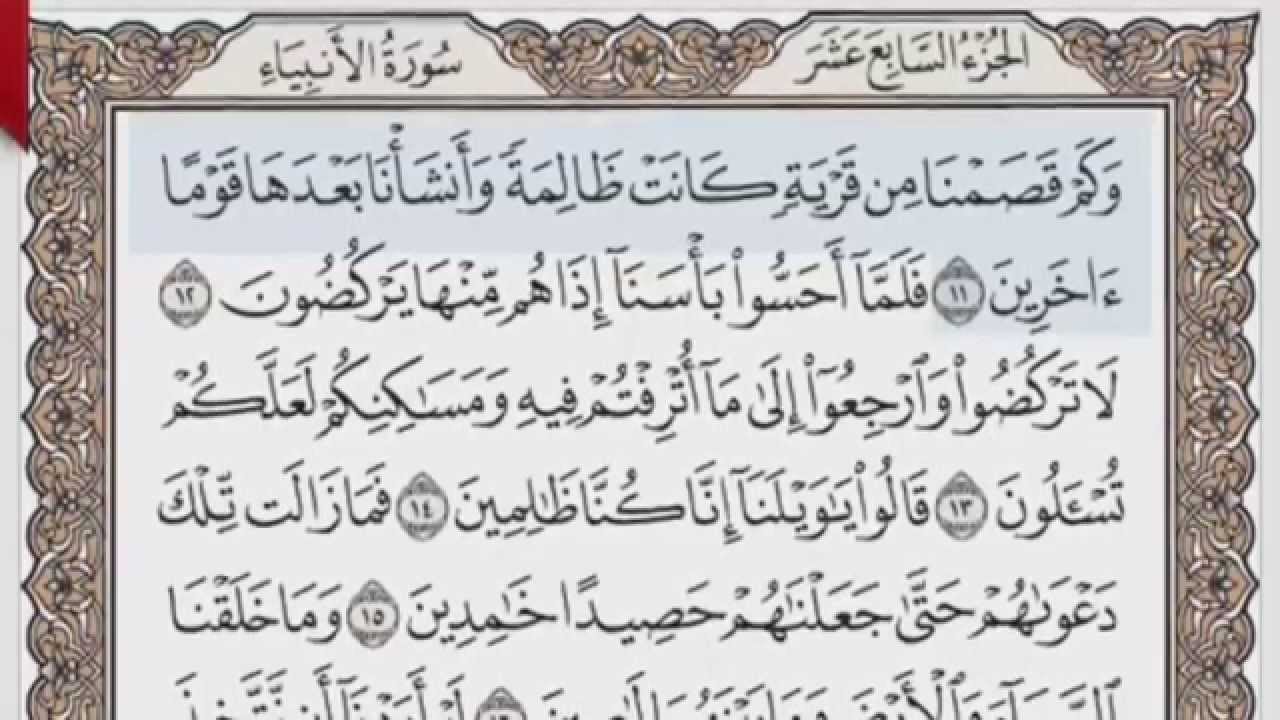 الجزء السابع عشر
سورة الأنبياء
وَكَمْ قَصَمْنَا مِن قَرْيَةٍ كَانَتْ ظَالِمَةً وَأَنشَأْنَا بَعْدَهَا قَوْمًا
ءَاخَرِينَ ١١ فَلَمَّآ أَحَسُّوا۟ بَأْسَنَآ إِذَا هُم مِّنْهَا يَرْكُضُونَ ١٢
لَا تَرْكُضُوا۟ وَٱرْجِعُوٓا۟ إِلَىٰ مَآ أُتْرِفْتُمْ فِيهِ وَمَسَـٰكِنِكُمْ لَعَلَّكُمْ
تُسْـَٔلُونَ ١٣ قَالُوا۟ يَـٰوَيْلَنَآ إِنَّا كُنَّا ظَـٰلِمِينَ ١٤ فَمَا زَالَت تِّلْكَ
دَعْوَىٰهُمْ حَتَّىٰ جَعَلْنَـٰهُمْ حَصِيدًا خَـٰمِدِينَ ١٥ وَمَا خَلَقْنَا